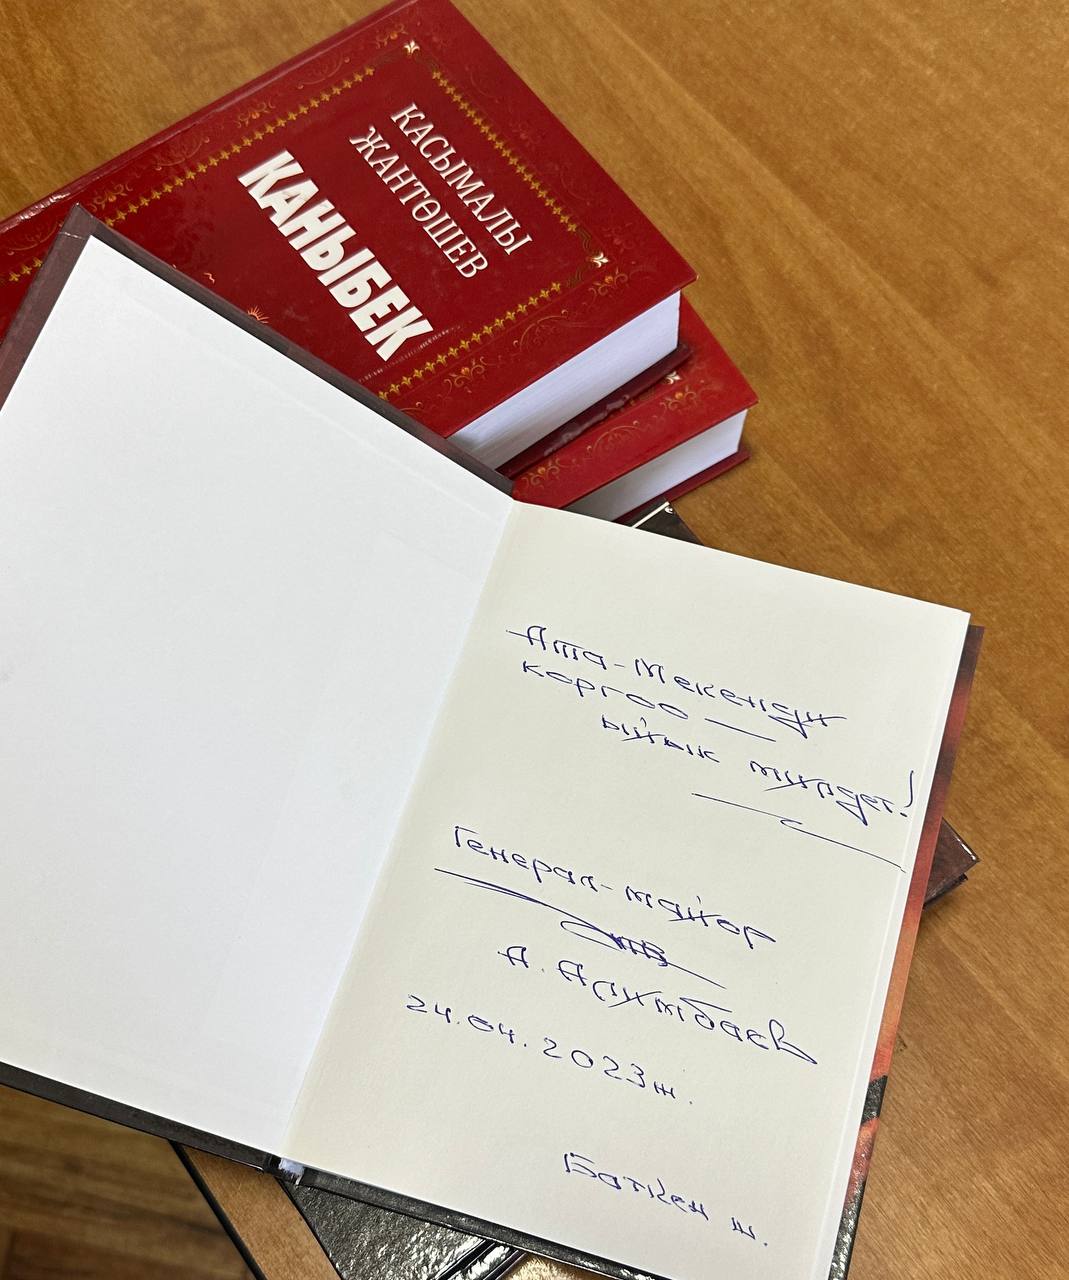 КАСЫМАЛЫ
ЖАНТӨШЕВ
КАНЫБЕК
Ата-Мекенди
коргоо —
ыйык милдет!
Генерал-майор
А. Алымбаев
24.04.2023ж.
Баткен ш.